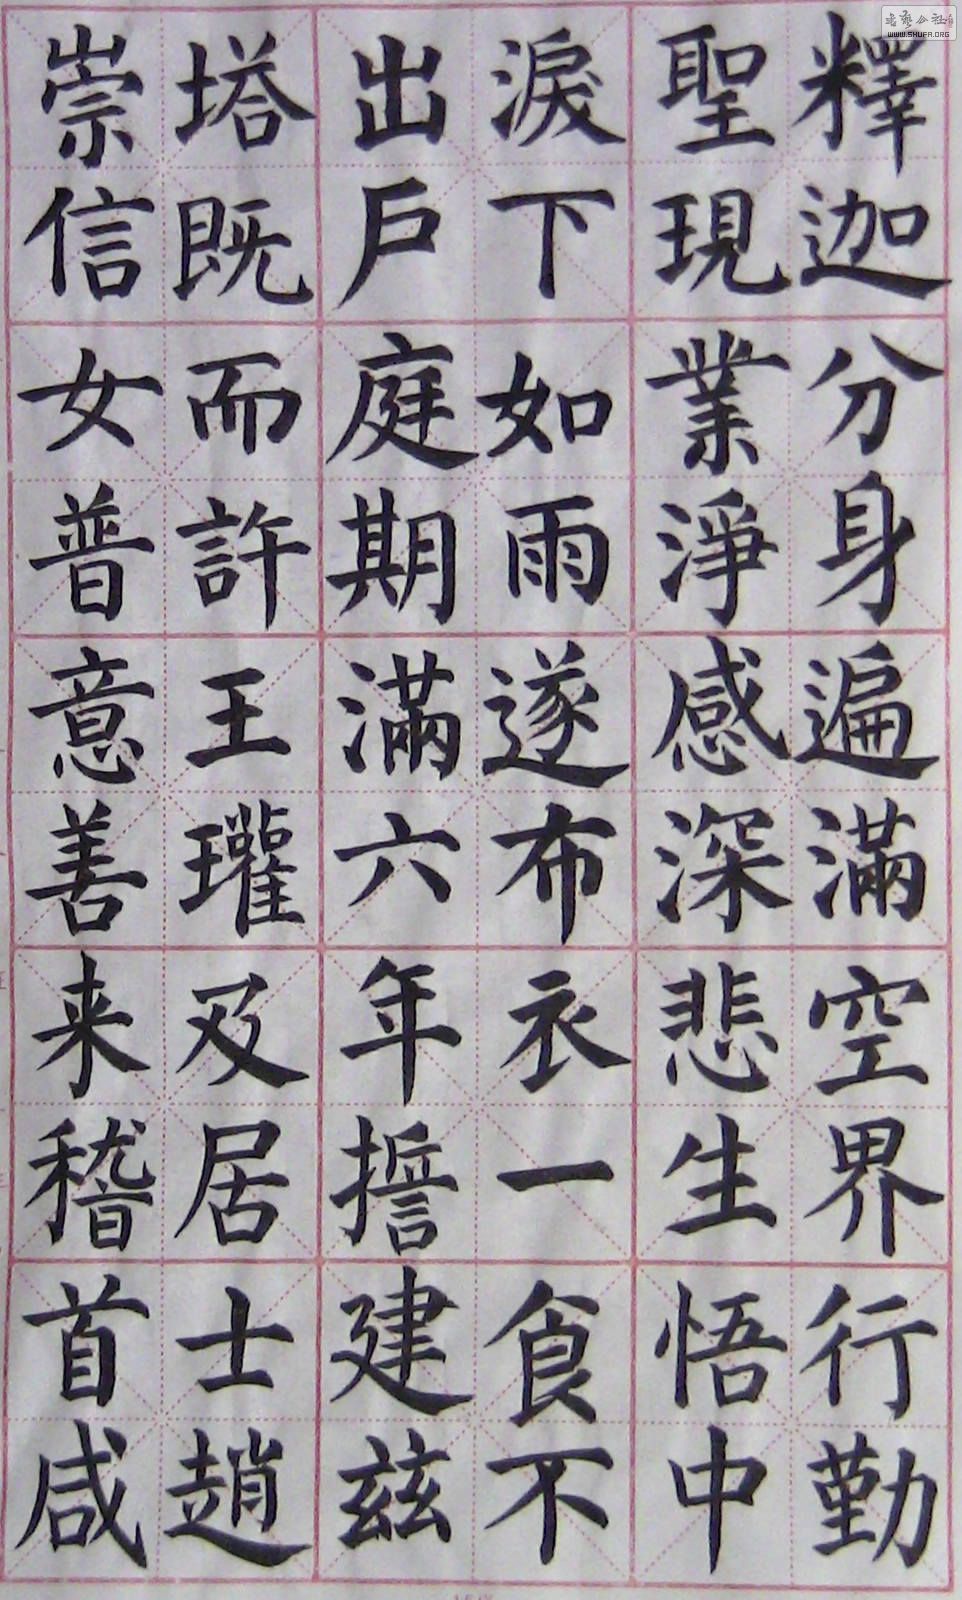 釋迦分身遍滿空界行勤
聖現業淨感深悲生悟中
淚下如雨遂布衣一食不
出戶庭期滿六年誓建茲
塔既而許王瓘及居士趙
崇信女普意善来稽首咸
WWW.SHUFA.ORG